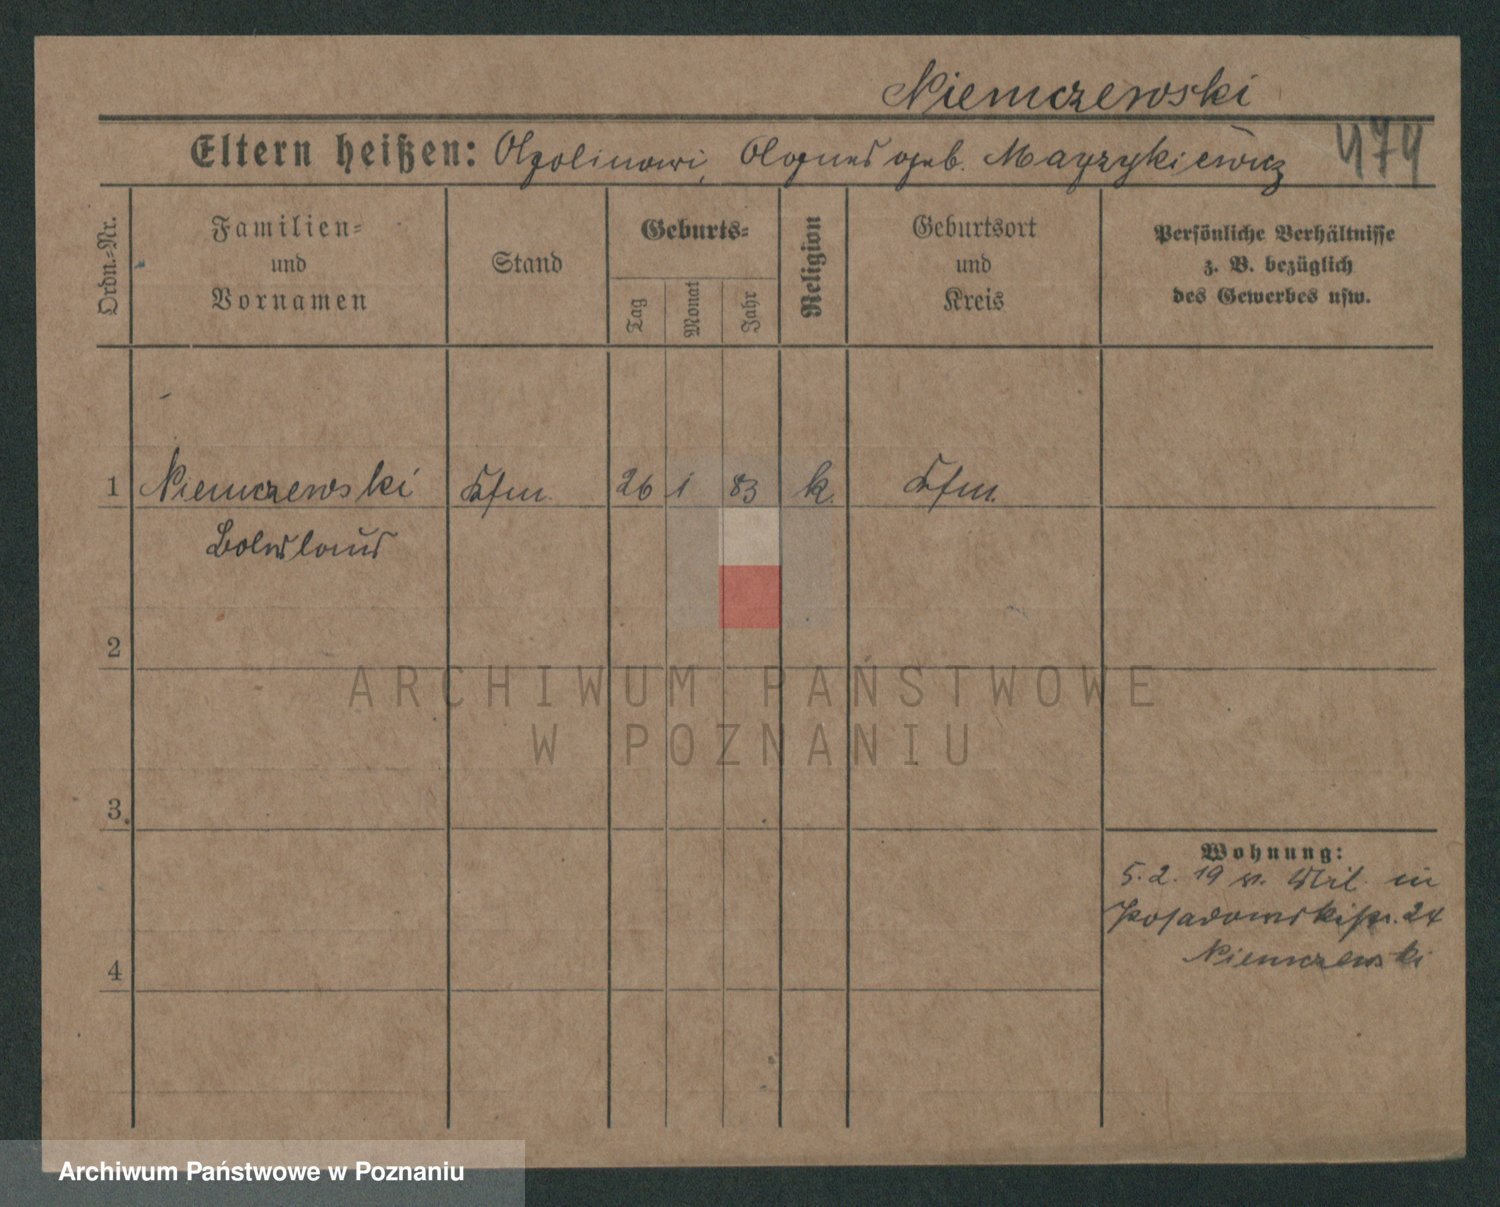 Niemczewski
Eltern heißen: Apolinowi, Agnes geb.
474
Ordn.-Nr.
Familien-
und
Vornamen
Stand
Geburts-
Tag
Monat
Jahr
Religion
Geburtsort
und
Kreis
Persönliche Verhältnisse
z. B. bezüglich
des Gewerbes usw.
1 Niemczewski Kfm. 26 1 83 k.
Boleslaus
2
3
4
Wohnung:
5. 2. 19 v. in
Posadowskistr. 24
Niemczewski
ARCHIWUM PAŃSTWOWE
W POZNANIU
Archiwum Państwowe w Poznaniu